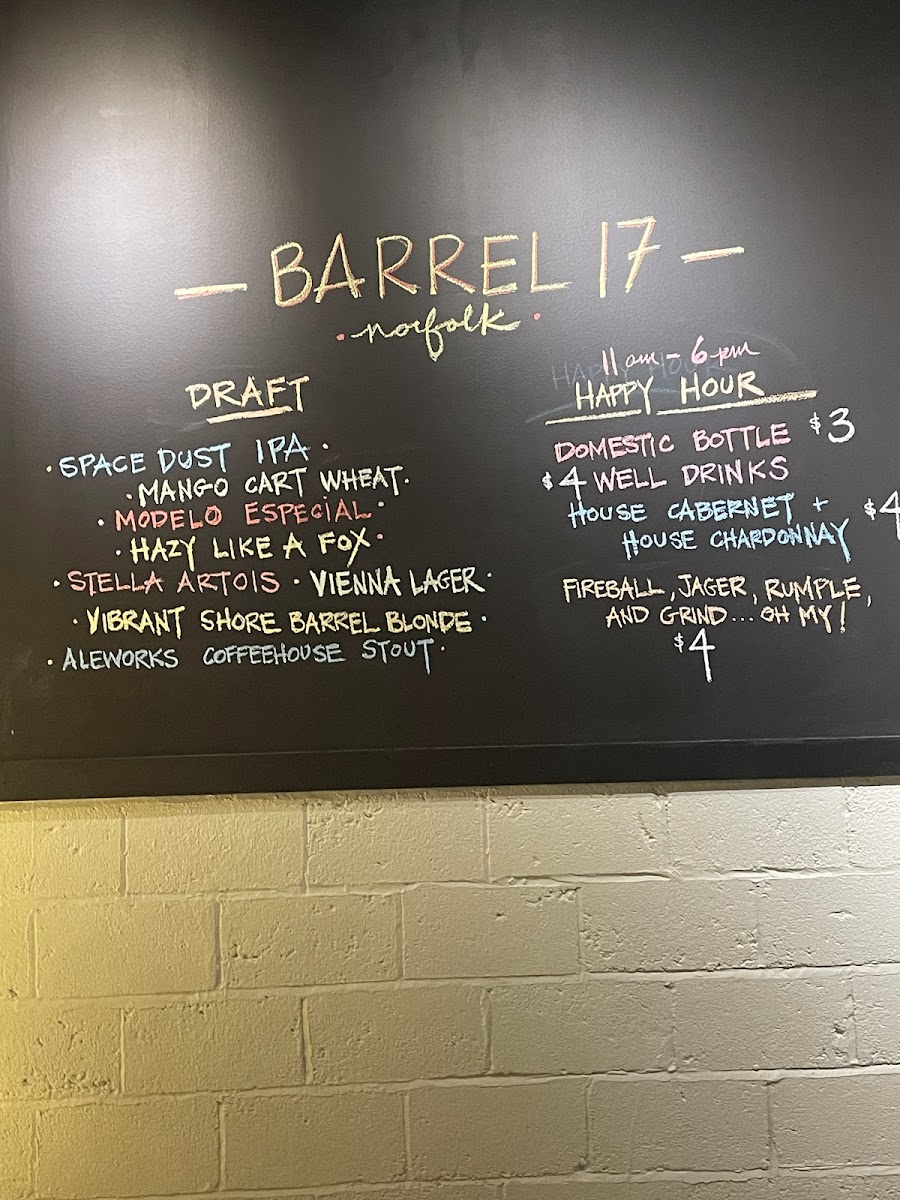 — BARREL 17 —
· norfolk ·
DRAFT
· SPACE DUST IPA ·
· MANGO CART WHEAT ·
· MODELO ESPECIAL ·
· HAZY LIKE A FOX ·
· STELLA ARTOIS · VIENNA LAGER ·
· VIBRANT SHORE BARREL BLONDE ·
· ALEWORKS COFFEEHOUSE STOUT ·
11 am - 6 pm
HAPPY HOUR
DOMESTIC BOTTLE $3
$4 WELL DRINKS
HOUSE CABERNET + $4
HOUSE CHARDONNAY
FIREBALL, JAGER, RUMPLE,
AND GRIND... OH MY!
$4